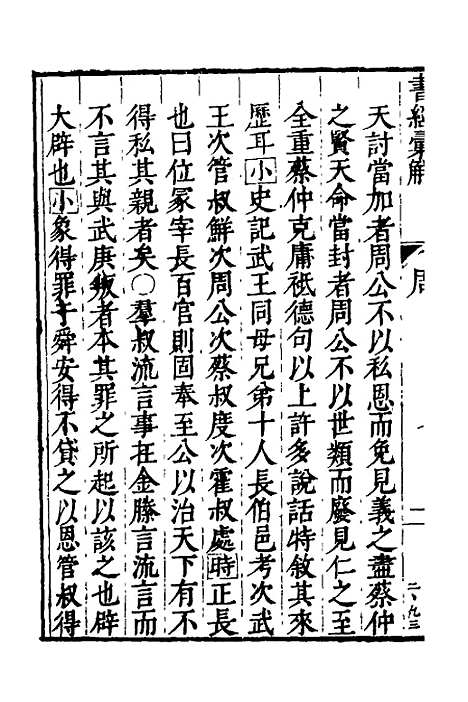 書經彙解
周
二
二、九三
天討當加者周公不以私恩而免見義之盡蔡仲
之賢天命當封者周公不以世類而廢見仁之至
全重蔡仲克庸祗德句以上許多說話特敘其來
歷耳小史記武王同母兄弟十人長伯邑考次武
王次管叔鮮次周公次蔡叔度次霍叔處時正長
也曰位冢宰長百官則固奉至公以治天下有不
得私其親者矣〇羣叔流言事在金縢言流言而
不言其與武庚叛者本其罪之所起以該之也辟
大辟也小象得罪于舜安得不貸之以恩管叔得